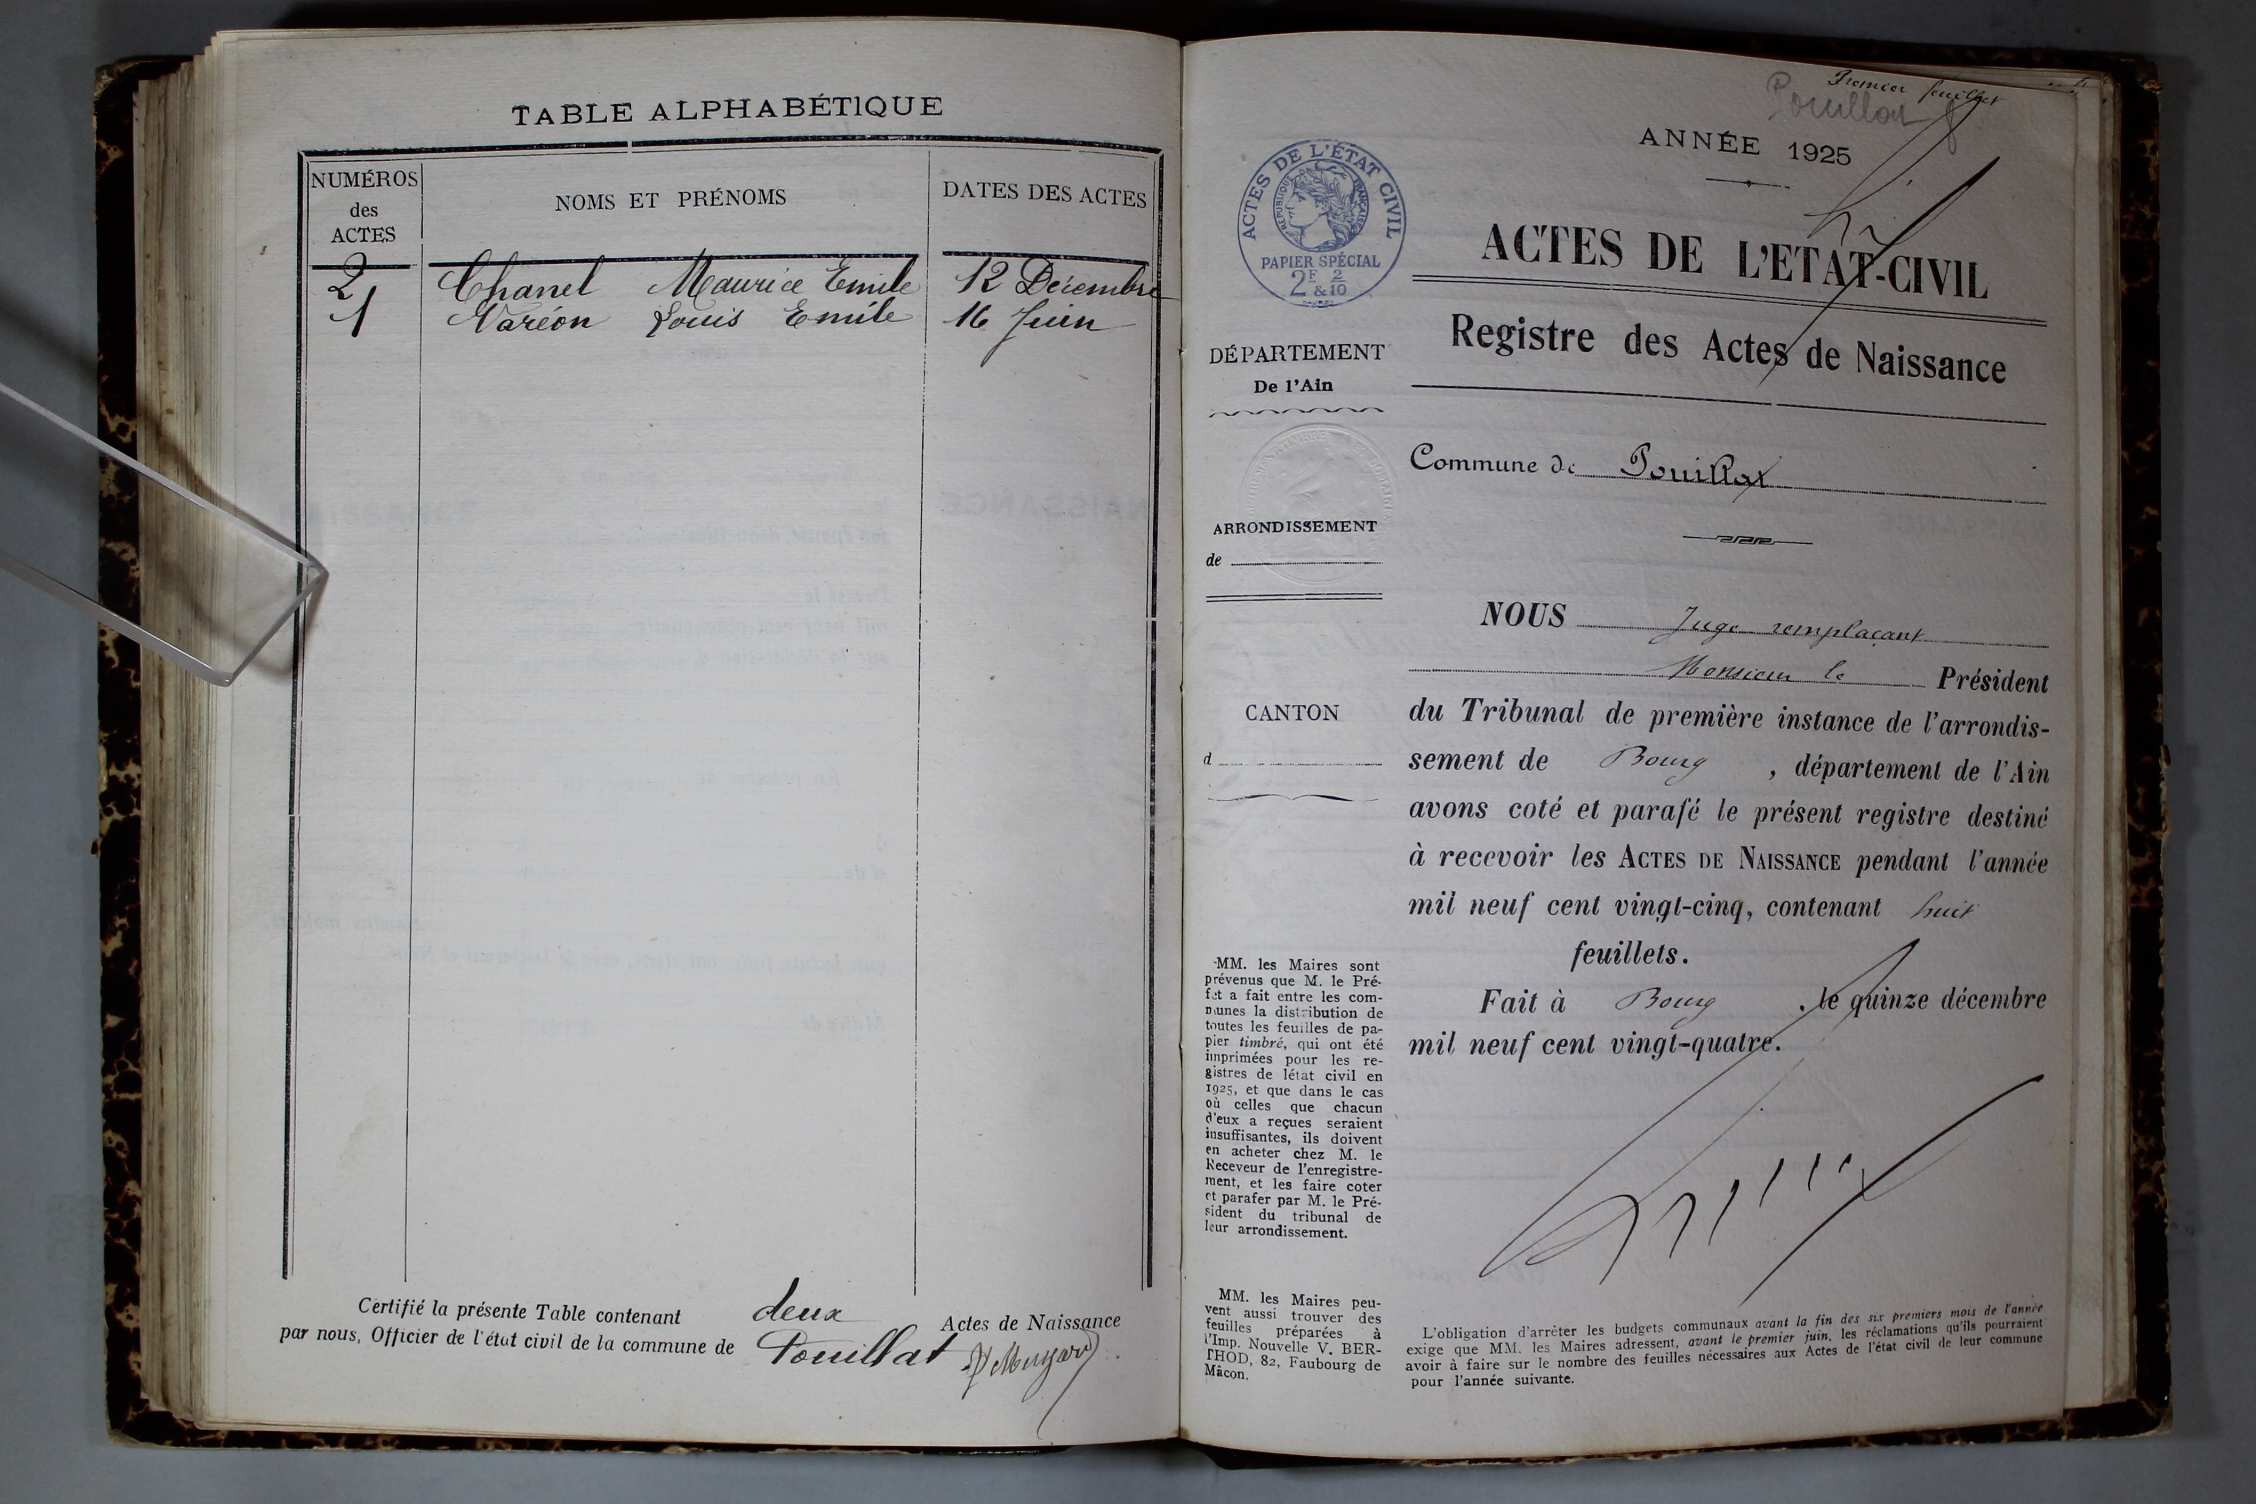 TABLE ALPHABÉTIQUE
NUMÉROS
des
ACTES
NOMS ET PRÉNOMS
DATES DES ACTES
2 Chanel Maurice Emile 12 Décembre
1 Naréon Louis Emile 16 Juin
Certifié la présente Table contenant deux Actes de Naissance
par nous, Officier de l'état civil de la commune de Pouillat
Premier feuillet
Pouillat 8
ANNÉE 1925
ACTES DE L'ÉTAT CIVIL
RÉPUBLIQUE FRANÇAISE
PAPIER SPÉCIAL
2F 2
&10
ACTES DE L'ETAT-CIVIL
Registre des Actes de Naissance
DÉPARTEMENT
De l'Ain
Commune de Pouillat
ARRONDISSEMENT
de
CANTON
d
NOUS Juge remplaçant
Monsieur le Président
du Tribunal de première instance de l'arrondis-
sement de Bourg , département de l'Ain
avons coté et parafé le présent registre destiné
à recevoir les ACTES DE NAISSANCE pendant l'année
mil neuf cent vingt-cinq, contenant huit
feuillets.
Fait à Bourg , le quinze décembre
mil neuf cent vingt-quatre.
MM. les Maires sont
prévenus que M. le Pré-
fet a fait entre les com-
munes la distribution de
toutes les feuilles de pa-
pier timbré, qui ont été
imprimées pour les re-
gistres de létat civil en
1925, et que dans le cas
où celles que chacun
d'eux a reçues seraient
insuffisantes, ils doivent
en acheter chez M. le
Receveur de l'enregistre-
ment, et les faire coter
et parafer par M. le Pré-
sident du tribunal de
leur arrondissement.
MM. les Maires peu-
vent aussi trouver des
feuilles préparées à
l'Imp. Nouvelle V. BER-
THOD, 82, Faubourg de
Mâcon.
L'obligation d'arrêter les budgets communaux avant la fin des six premiers mois de l'année
exige que MM. les Maires adressent, avant le premier juin, les réclamations qu'ils pourraient
avoir à faire sur le nombre des feuilles nécessaires aux Actes de l'état civil de leur commune
pour l'année suivante.